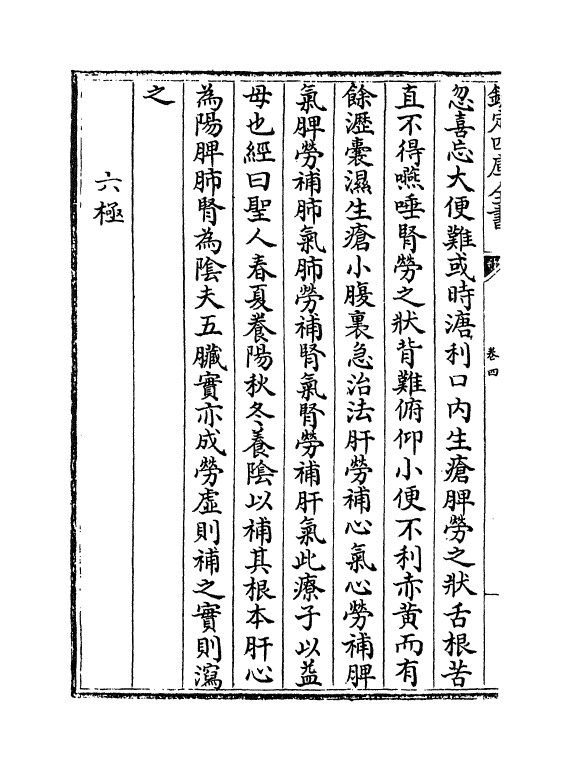 欽定四庫全書
卷四
忽喜忘大便難或時溏利口内生瘡脾勞之狀舌根苦
直不得嚥唾腎勞之狀背難俯仰小便不利赤黄而有
餘瀝囊濕生瘡小腹裏急治法肝勞補心氣心勞補脾
氣脾勞補肺氣肺勞補腎氣腎勞補肝氣此療子以益
母也經曰聖人春夏養陽秋冬養陰以補其根本肝心
為陽脾肺腎為陰夫五臓實亦成勞虛則補之實則瀉
之
六極